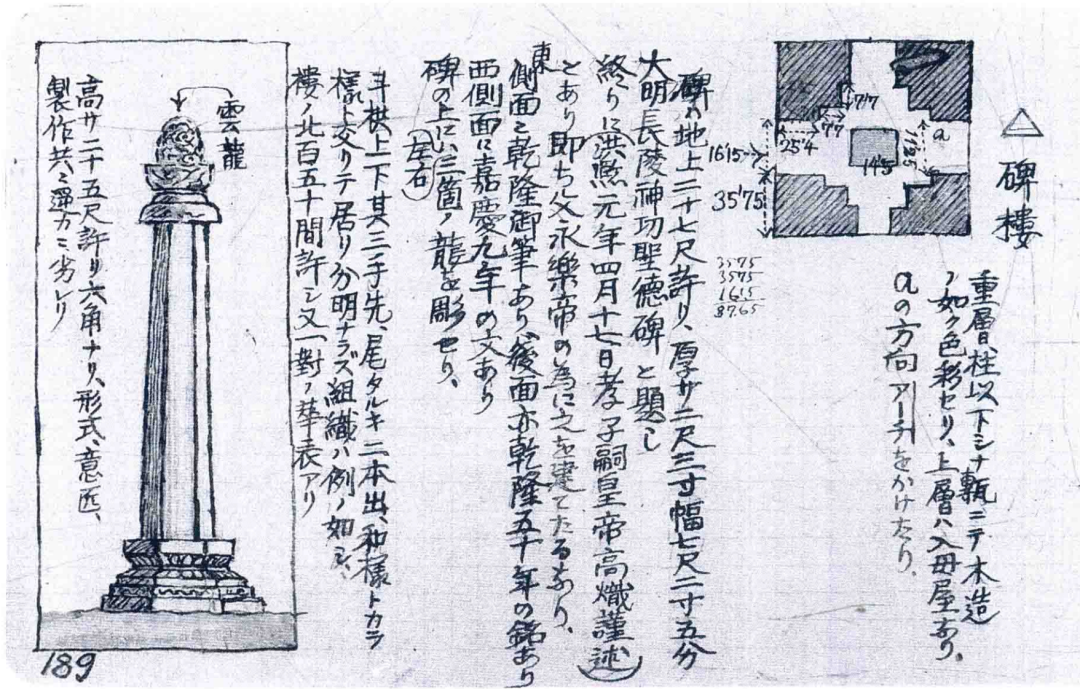 △碑樓
重層日柱以下シナ甎ニテ木造
ノ如ク色彩セリ、上層ハ入母屋なり、
aの方向アーチをかけたり、
a
7'7
7'7
25'4
14'5
16'5
16'15
35'75
3575
3575
1615
8765
碑ハ地上二十七尺許り、厚サ二尺三寸幅七尺二寸五分
大明長陵神功聖德碑と題し
終りに洪熙元年四月十七日孝子嗣皇帝高熾謹述
とあり即ち父永樂帝の為に之を建てたるなり、
東側面ニ乾隆御筆あり、後面亦乾隆五十年の銘あり
西側面に嘉慶九年の文あり
碑の上に三箇ノ龍を彫せり、
斗栱上下其三手先、尾タルキ二本出、和樣トカラ
樣ト交リテ居リ分明ナラズ組織ハ例ノ如シ、
樓ノ北百五十間許ニ又一對ノ華表アリ
雲龍
高サ二十五尺許り六角ナリ、形式、意匠、
製作共ニ
189